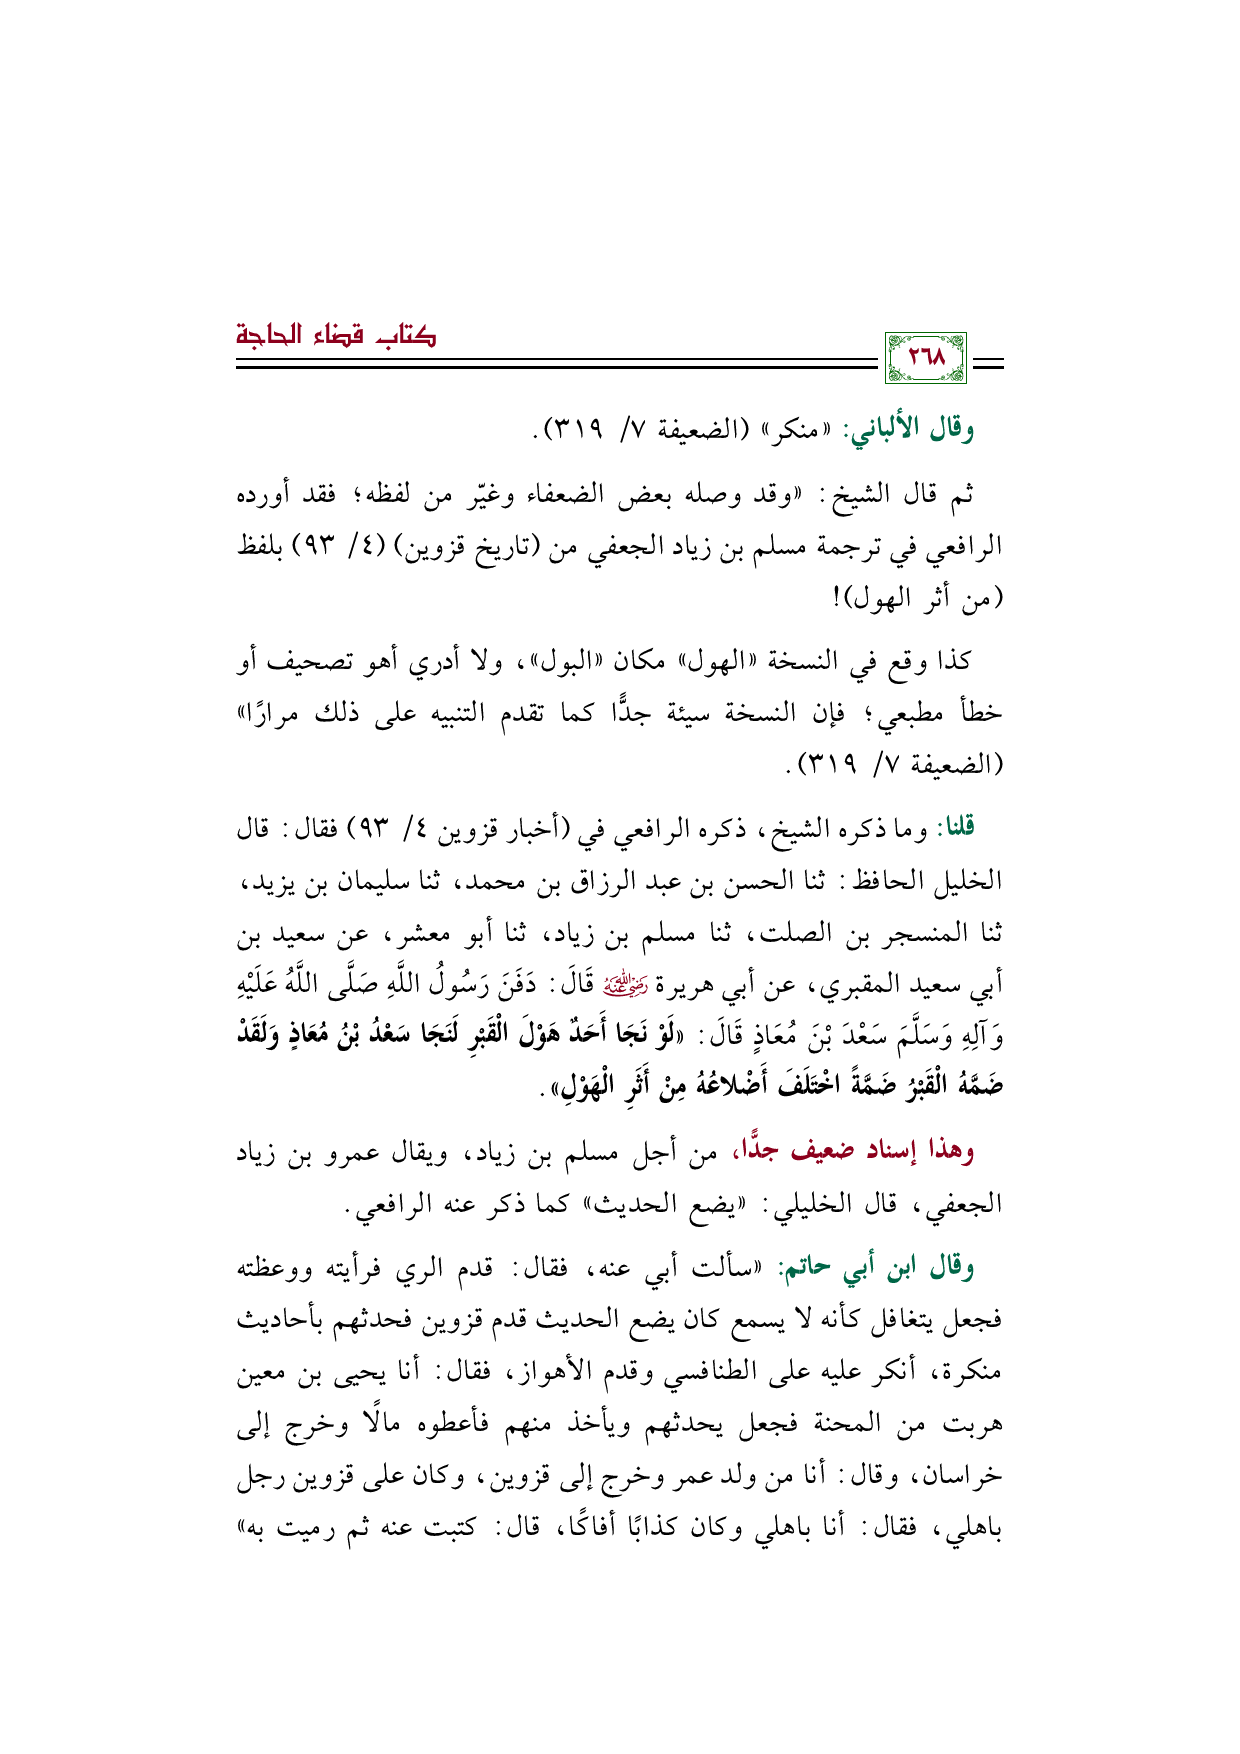 كتاب قضاء الحاجة
٢٦٨
وقال الألباني: «منكر» (الضعيفة ٧/ ٣١٩).
ثم قال الشيخ: «وقد وصله بعض الضعفاء وغيّر من لفظه؛ فقد أورده
الرافعي في ترجمة مسلم بن زياد الجعفي من (تاريخ قزوين) (٤/ ٩٣) بلفظ
(من أثر الهول)!
كذا وقع في النسخة «الهول» مكان «البول»، ولا أدري أهو تصحيف أو
خطأ مطبعي؛ فإن النسخة سيئة جدًّا كما تقدم التنبيه على ذلك مرارًا»
(الضعيفة ٧/ ٣١٩).
قلنا: وما ذكره الشيخ، ذكره الرافعي في (أخبار قزوين ٤/ ٩٣) فقال: قال
الخليل الحافظ: ثنا الحسن بن عبد الرزاق بن محمد، ثنا سليمان بن يزيد،
ثنا المنسجر بن الصلت، ثنا مسلم بن زياد، ثنا أبو معشر، عن سعيد بن
أبي سعيد المقبري، عن أبي هريرة رضي الله عنه قَالَ: دَفَنَ رَسُولُ اللَّهِ صَلَّى اللَّهُ عَلَيْهِ
وَآلِهِ وَسَلَّمَ سَعْدَ بْنَ مُعَاذٍ قَالَ: «لَوْ نَجَا أَحَدٌ هَوْلَ الْقَبْرِ لَنَجَا سَعْدُ بْنُ مُعَاذٍ وَلَقَدْ
ضَمَّهُ الْقَبْرُ ضَمَّةً اخْتَلَفَ أَضْلاعُهُ مِنْ أَثَرِ الْهَوْلِ».
وهذا إسناد ضعيف جدًّا، من أجل مسلم بن زياد، ويقال عمرو بن زياد
الجعفي، قال الخليلي: «يضع الحديث» كما ذكر عنه الرافعي.
وقال ابن أبي حاتم: «سألت أبي عنه، فقال: قدم الري فرأيته ووعظته
فجعل يتغافل كأنه لا يسمع كان يضع الحديث قدم قزوين فحدثهم بأحاديث
منكرة، أنكر عليه على الطنافسي وقدم الأهواز، فقال: أنا يحيى بن معين
هربت من المحنة فجعل يحدثهم ويأخذ منهم فأعطوه مالًا وخرج إلى
خراسان، وقال: أنا من ولد عمر وخرج إلى قزوين، وكان على قزوين رجل
باهلي، فقال: أنا باهلي وكان كذابًا أفاكًا، قال: كتبت عنه ثم رميت به»